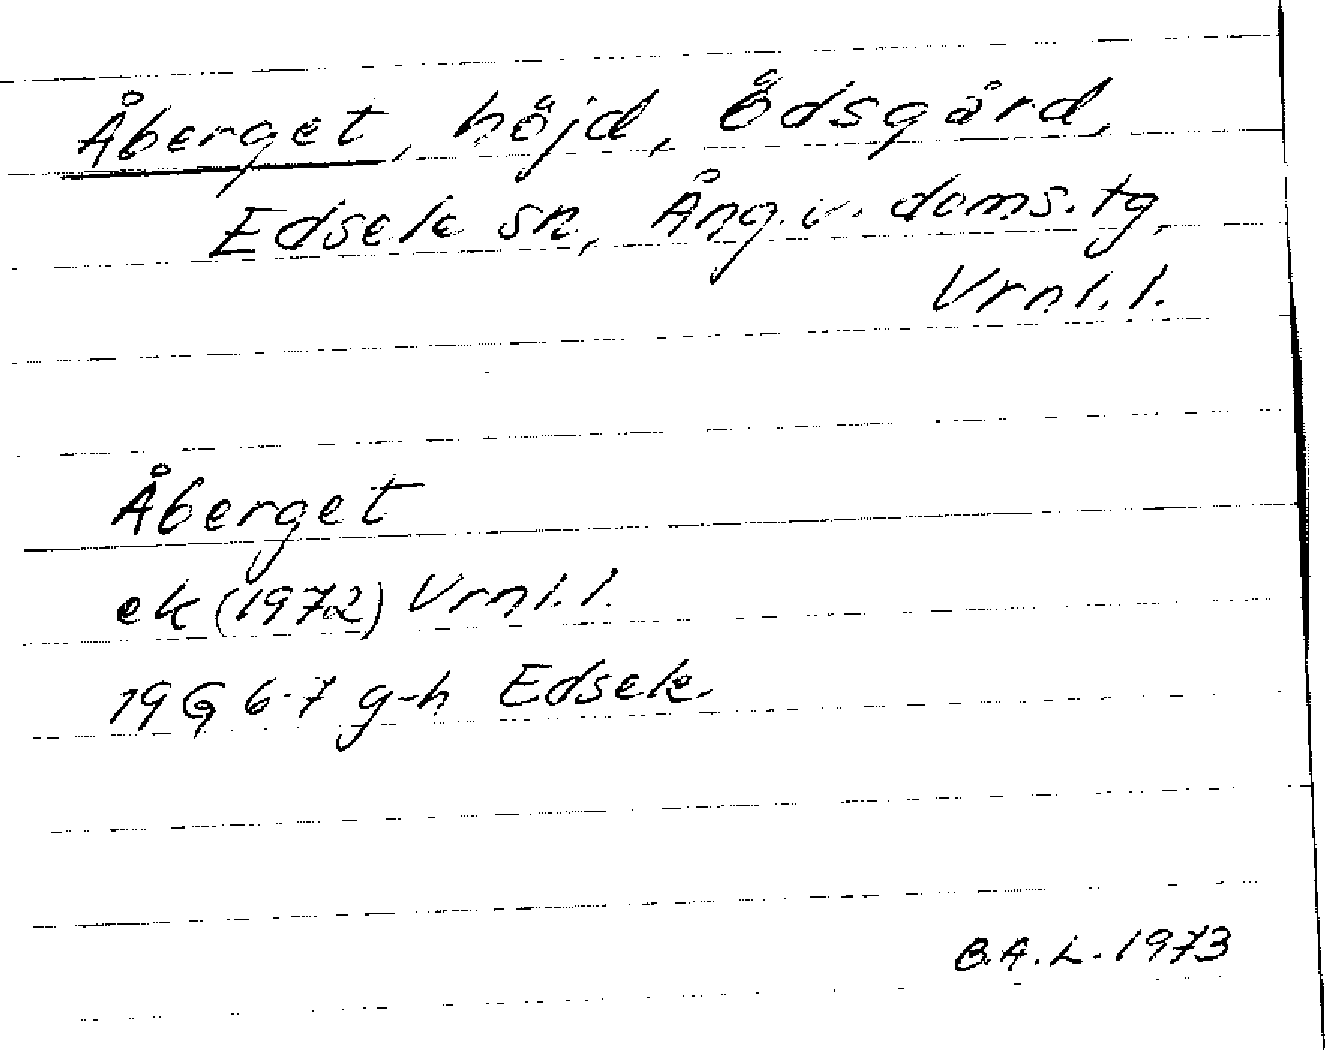 Åberget, höjd, Ödsgård,
Edsele sn, Ång.v. doms.tg,
Vrnl.l.
Åberget
ek (1972) Vrnl.l.
19G 6-7 g-h Edsele.
B.A.L. 1973